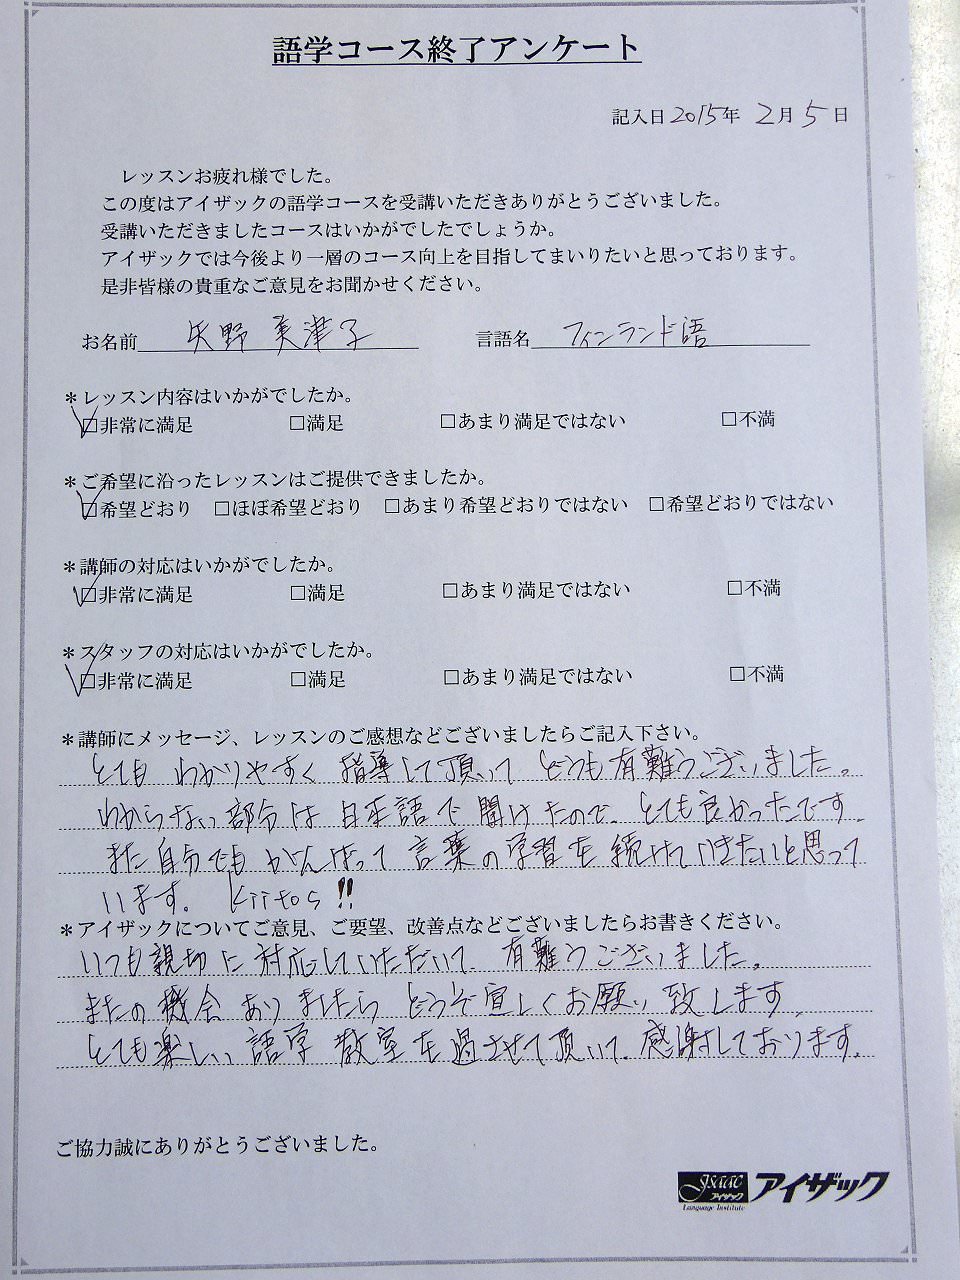 語学コース終了アンケート
記入日 2015年 2月 5日
レッスンお疲れ様でした。
この度はアイザックの語学コースを受講いただきありがとうございました。
受講いただきましたコースはいかがでしたでしょうか。
アイザックでは今後より一層のコース向上を目指してまいりたいと思っております。
是非皆様の貴重なご意見をお聞かせください。
お名前 矢野 美津子 言語名 フィンランド語
＊レッスン内容はいかがでしたか。
☑非常に満足 □満足 □あまり満足ではない □不満
＊ご希望に沿ったレッスンはご提供できましたか。
☑希望どおり □ほぼ希望どおり □あまり希望どおりではない □希望どおりではない
＊講師の対応はいかがでしたか。
☑非常に満足 □満足 □あまり満足ではない □不満
＊スタッフの対応はいかがでしたか。
☑非常に満足 □満足 □あまり満足ではない □不満
＊講師にメッセージ、レッスンのご感想などございましたらご記入下さい。
とても わかりやすく 指導して頂いて どうも有難うございました。
わからない部分は日本語で聞けたので、とても良かったです。
また自分でも がんばって 言葉の学習を続けていきたいと思って
います。 Kiitos!!
＊アイザックについてご意見、ご要望、改善点などございましたらお書きください。
いつも親切に対応していただいて、有難うございました。
またの機会ありましたら どうぞ宜しくお願い致します。
とても楽しい語学教室を過させて頂いて、感謝しております。
ご協力誠にありがとうございました。
Isaac アイザック Language Institute アイザック